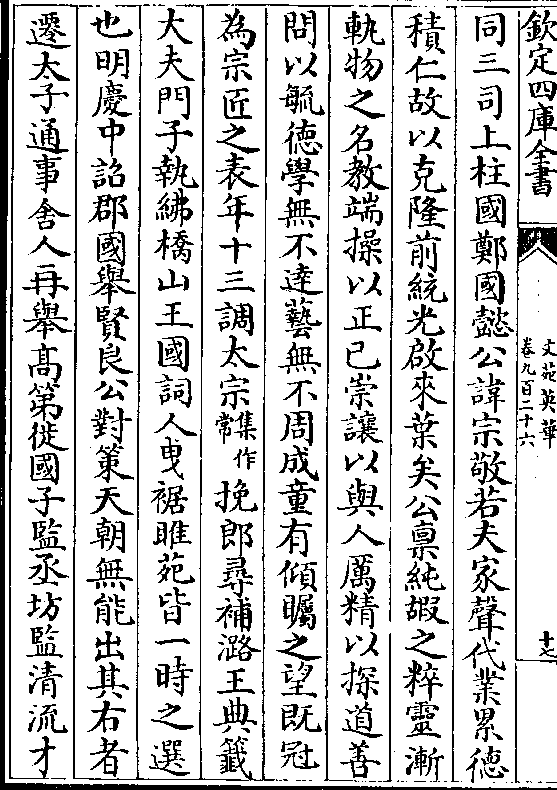 欽定四庫全書
文苑英華
卷九百二十六
十七
同三司上柱國鄭國懿公諱宗敬若夫家聲代業累德
積仁故以克隆前統光啟來葉矣公稟純嘏之粹靈漸
軌物之名教端操以正已崇讓以與人厲精以探道善
問以毓德學無不逹藝無不周成童有傾矚之望既冠
為宗匠之表年十三調太宗集作常挽郎尋補潞王典籤
大夫門子執紼橋山王國詞人曳裾睢苑皆一時之選
也明慶中詔郡國舉賢良公對策天朝無能出其右者
遷太子通事舍人再舉高第徙國子監丞坊監清流才